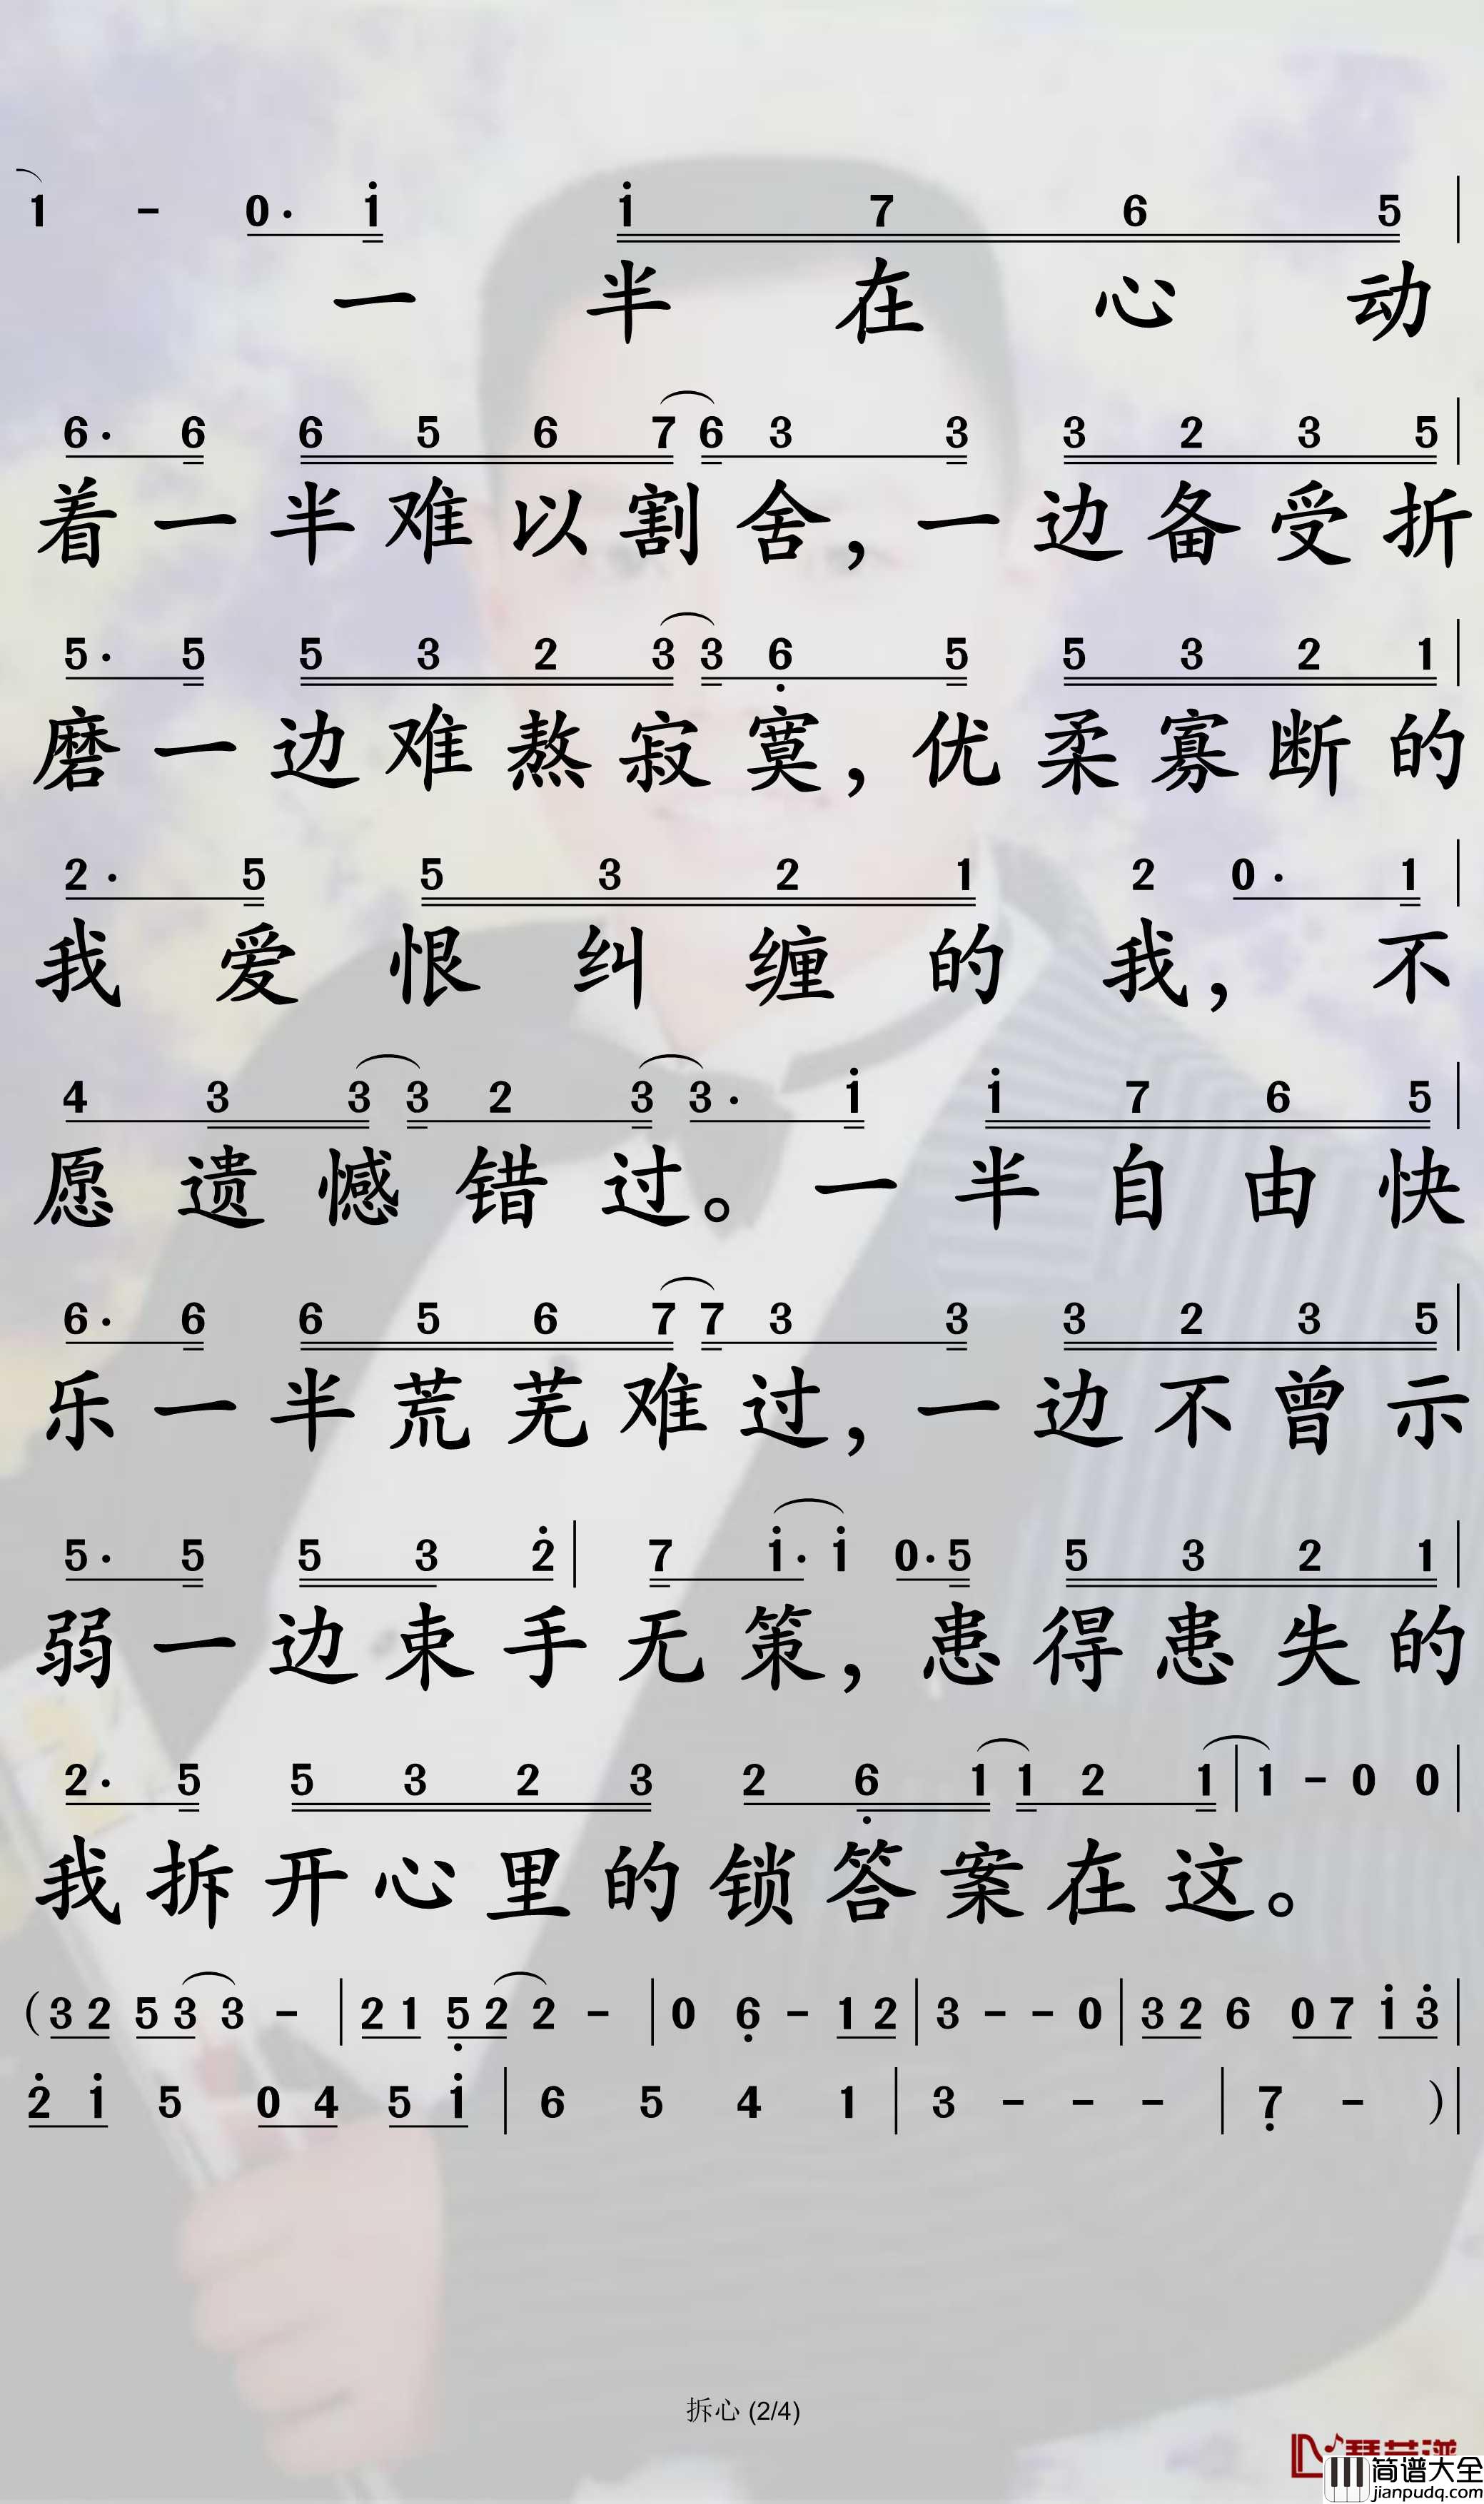 1 - 0· 1̇ 1̇ 7 6 5 |
一 半 在 心 动
6· 6 6 5 6 7 6 3 3 3 2 3 5 |
着一半难以割舍，一边备受折
5· 5 5 3 2 3 3 6̣ 5 5 3 2 1 |
磨一边难熬寂寞，优柔寡断的
2· 5 5 3 2 1 2 0· 1 |
我 爱 恨 纠 缠 的 我， 不
4 3 3 3 2 3 3· 1̇ 1̇ 7 6 5 |
愿遗憾错过。一半自由快
6· 6 6 5 6 7 7 3 3 3 2 3 5 |
乐一半荒芜难过，一边不曾示
5· 5 5 3 2̇ | 7 1̇· 1̇ 0· 5 5 3 2 1 |
弱一边束手无策，患得患失的
2· 5 5 3 2 3 2 6̣ 1 1 2 1 | 1 - 0 0 |
我拆开心里的锁答案在这。
(3 2 5 3 3 - | 2 1 5̣ 2 2 - | 0 6̣ - 1 2 | 3 - - 0 | 3 2 6 0 7 1̇ 3̇ |
2̇ 1̇ 5 0 4 5 1̇ | 6 5 4 1 | 3 - - - | 7̣ - ) |
拆心 (2/4)
简谱大全
jianpudq.com